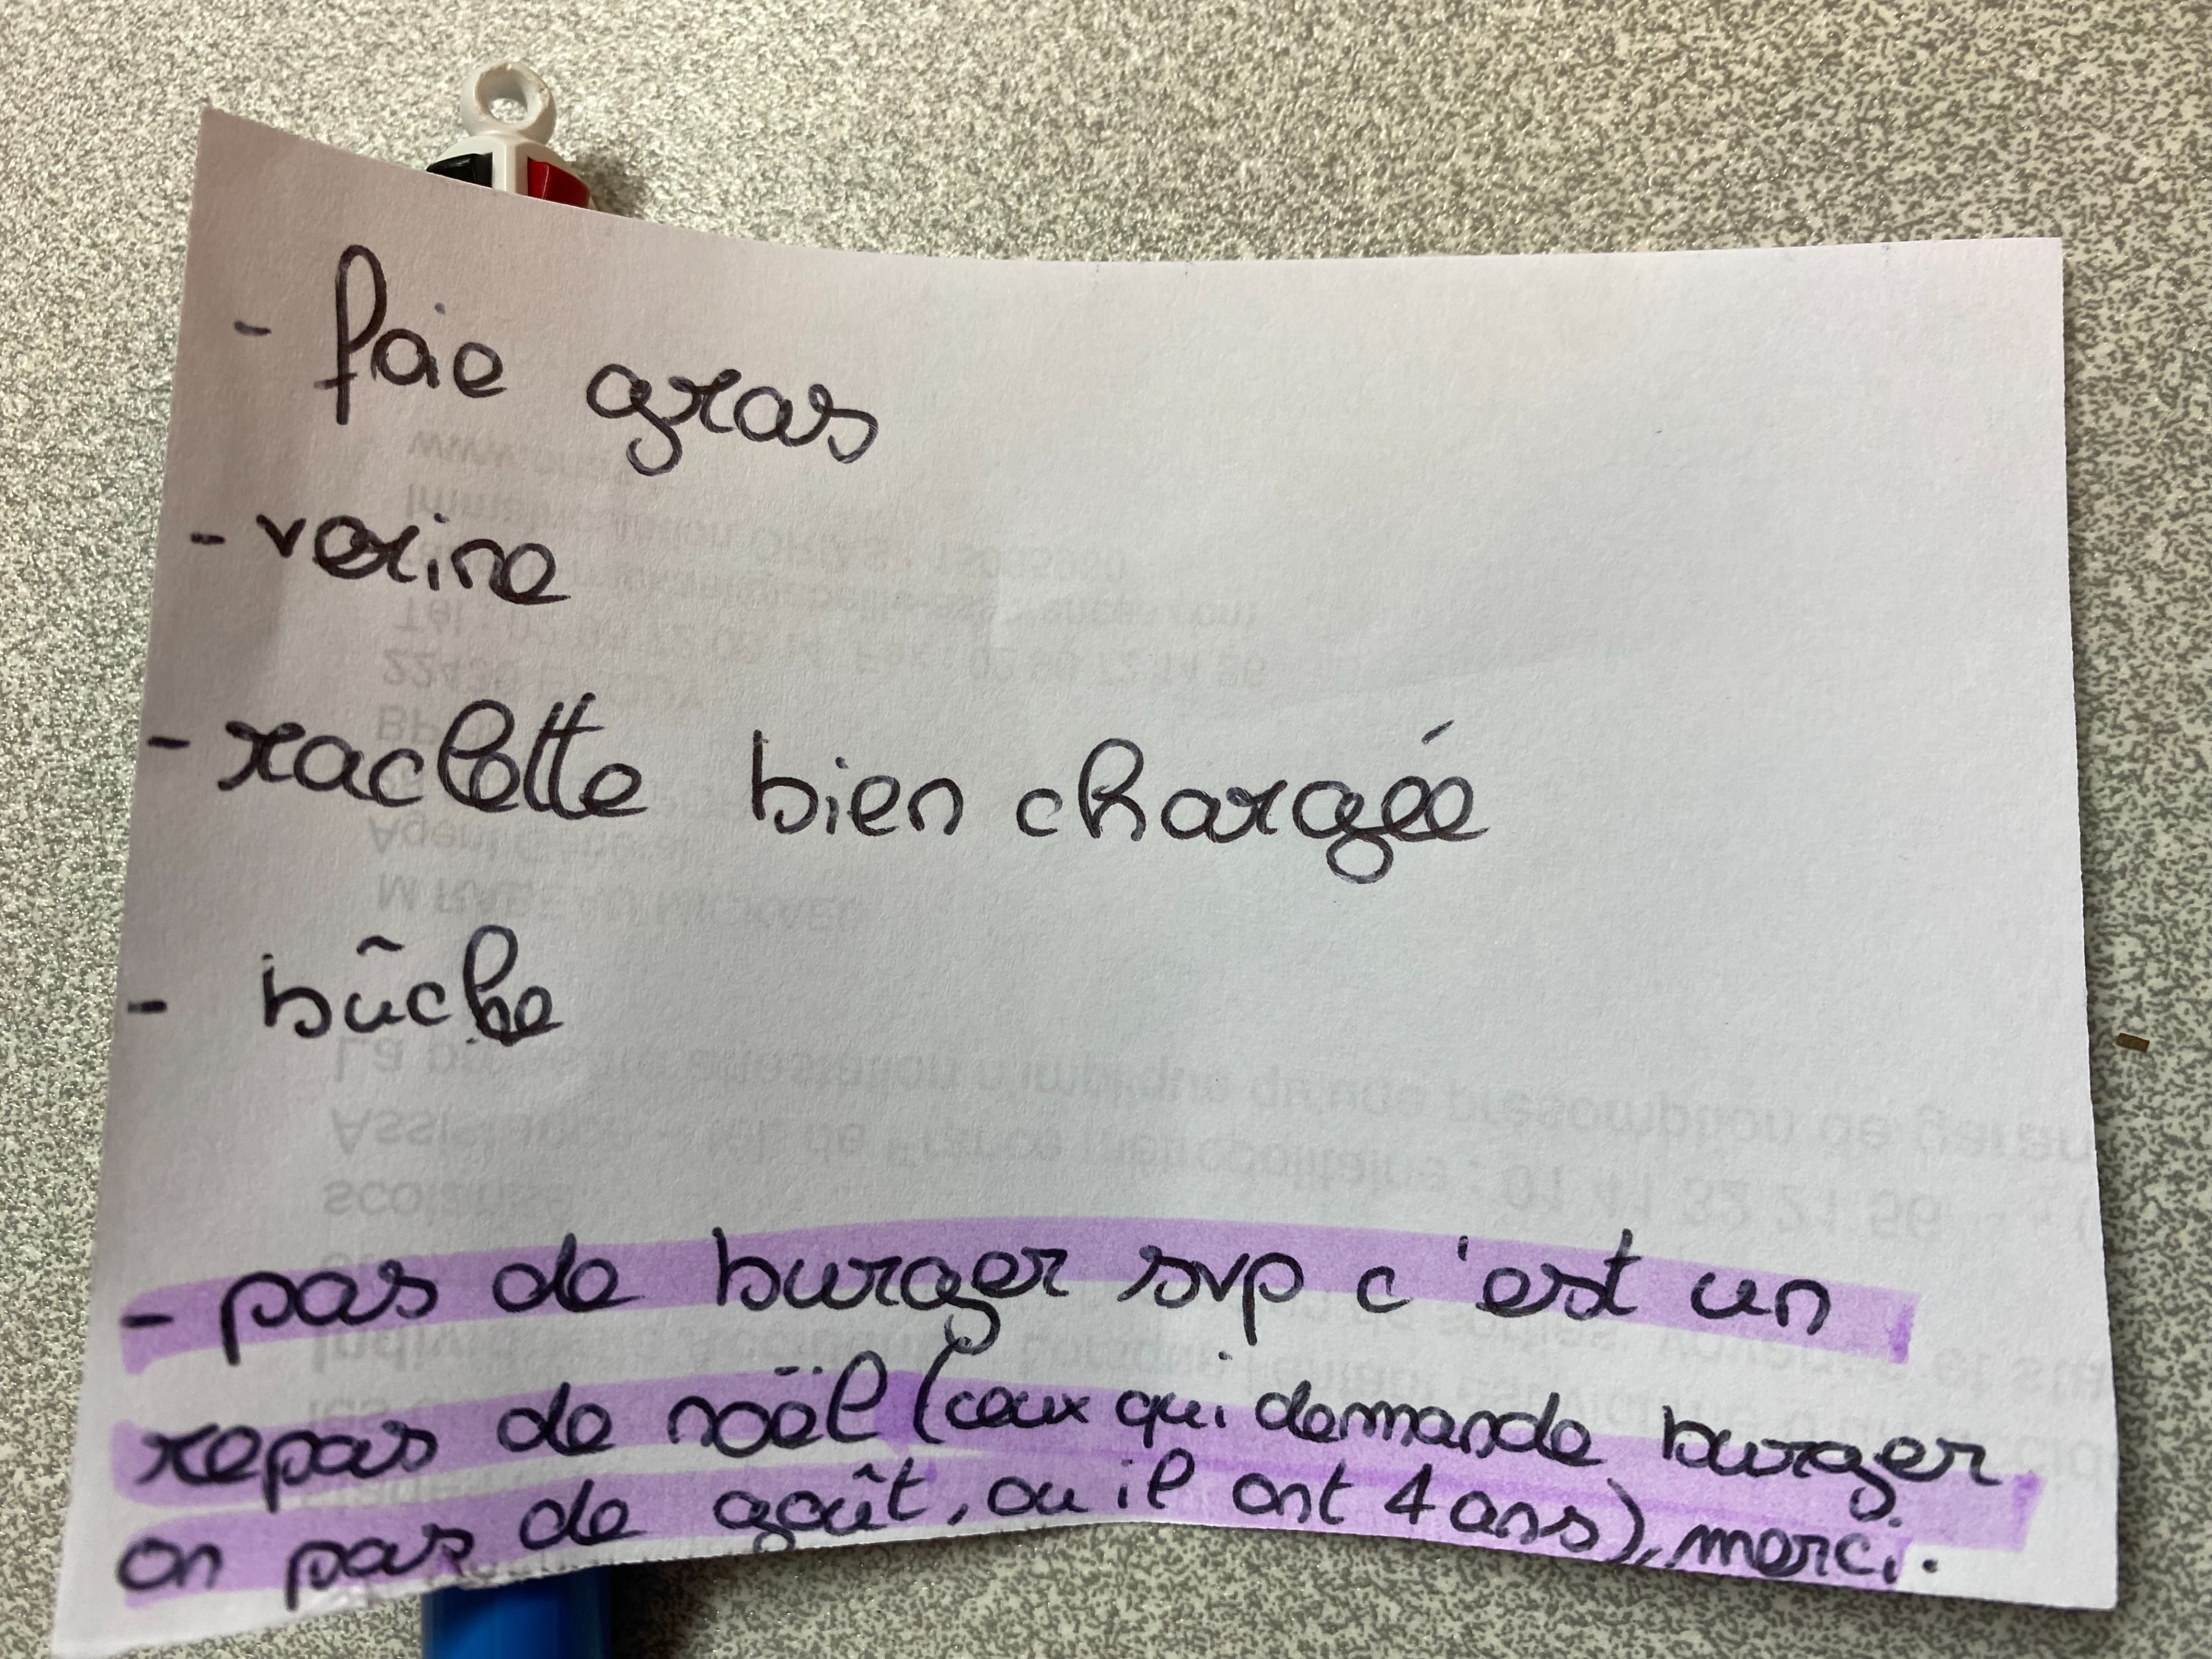 - foie gras
- verine
- raclette bien chargée
- bûche
- pas de burger svp c'est un
repas de noël (ceux qui demande burger
on pas de goût, ou il ont 4 ans), merci.